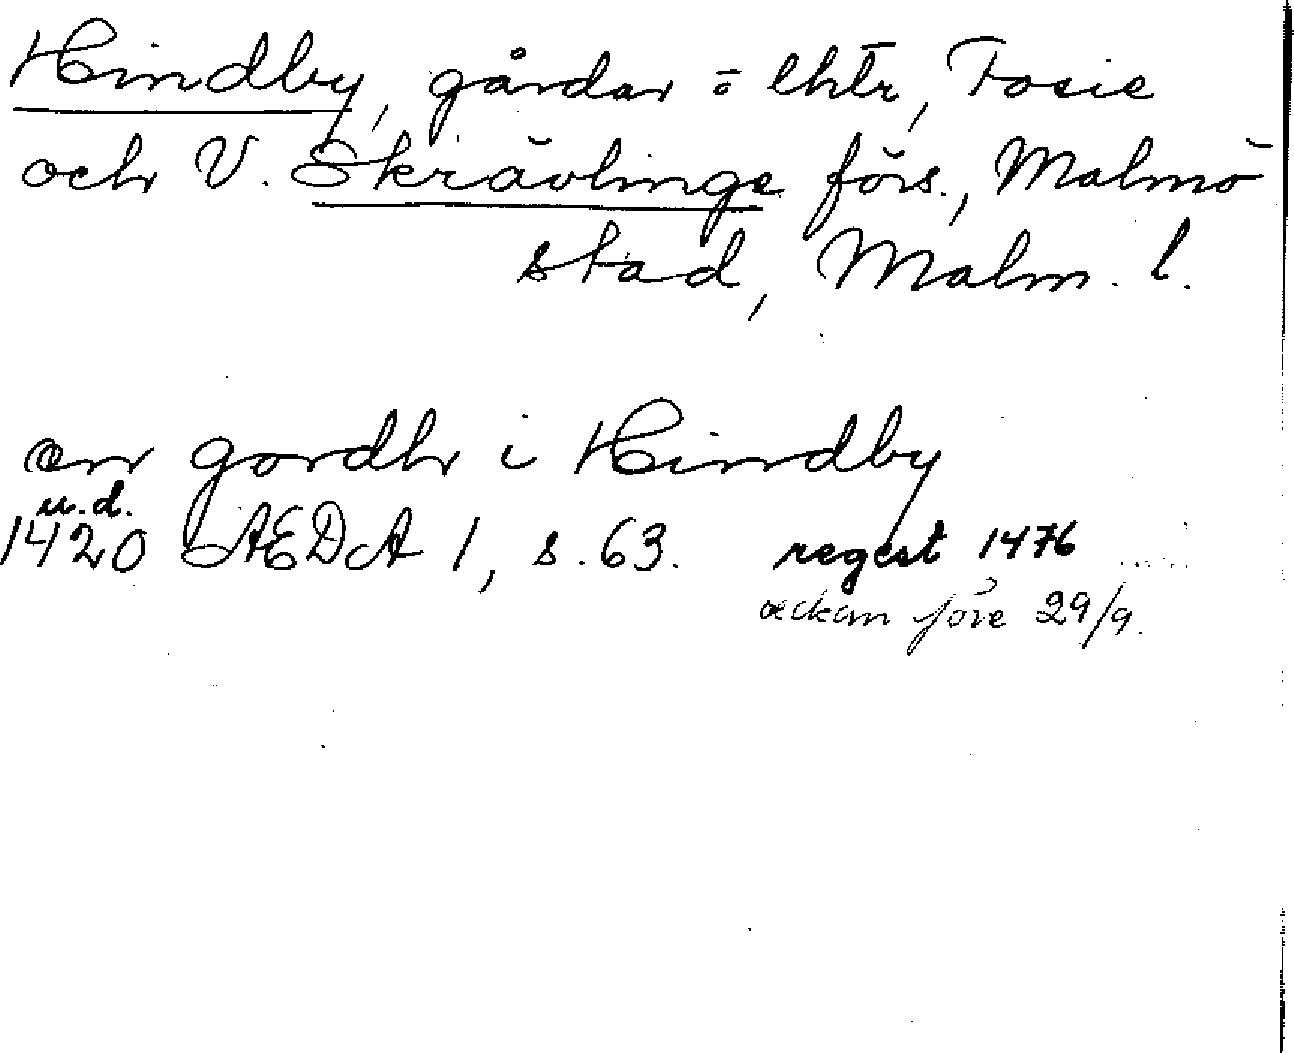 Hindby, gårdar o lhtr, Fosie
och V. Skrävlinge förs., Malmö
stad, Malm. l.
en gordh i Hindby
u.d.
1420 LÆDA 1, s. 63. regest 1476
före 29/9.